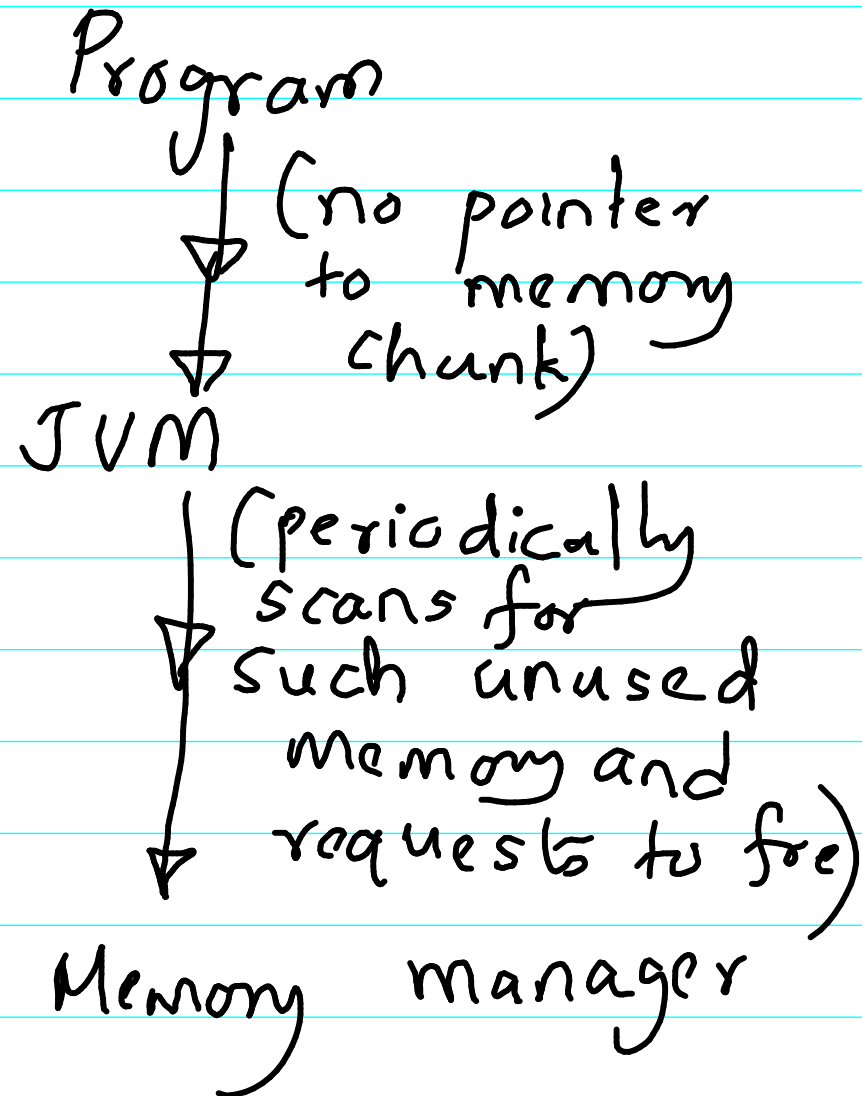 Program
(no pointer
to memory
chunk)
JVM
(periodically
scans for
such unused
memory and
requests to fre)
Memory manager